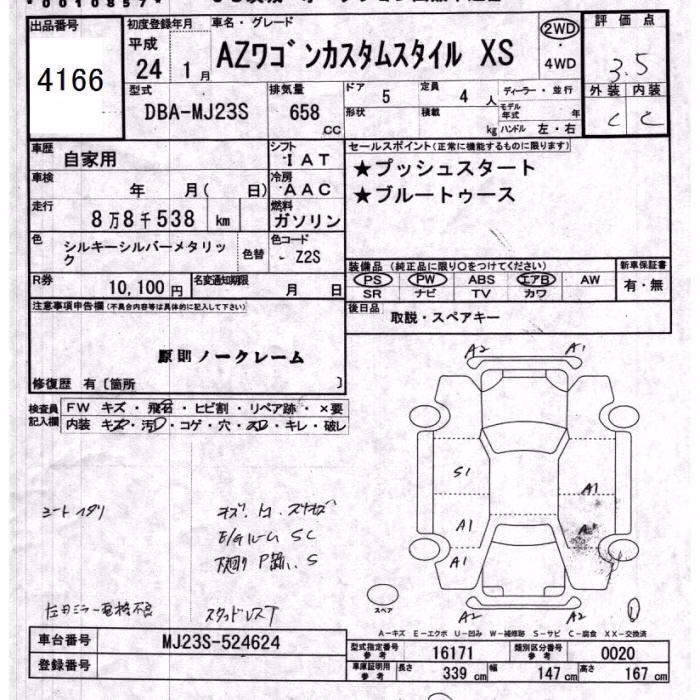 *0010857*
出品番号
4166
初度登録年月
平成
24 1月
車名・グレード
AZワゴンカスタムスタイル XS
2WD
4WD
評価点
3.5
外装 内装
C C
型式
DBA-MJ23S
排気量
658
CC
ドア
5
定員
4人
ディーラー・並行
モデル年式 年
形状
積載
kg
ハンドル 左・右
車歴
自家用
シフト
IAT
車検
年 月( 日)
冷房
AAC
走行
8万8千538 km
燃料
ガソリン
色
シルキーシルバーメタリック
色替
色コード
- Z2S
R券
10,100円
名変通知期限
月 日
セールスポイント(正常に機能するものに限ります)
★プッシュスタート
★ブルートゥース
装備品(純正品に限り○をつけてください)
PS PW ABS エアB AW
SR ナビ TV カワ
新車保証書
有・無
後日品
取説・スペアキー
注意事項申告欄(不具合内容等は具体的に記入して下さい)
原則ノークレーム
修復歴 有〔箇所 〕
検査員記入欄
FW キズ・飛石・ヒビ割・リペア跡・×要
内装 キズ・汚レ・コゲ・穴・スレ・キレ・破レ
A2 A1
S1 A1
A1 A1
A2 A2
シートイタリ
E/Gルーム SC
下廻り P跡、S
左田ミラー電格不良
スタッドレスT
スペア
A-キズ E-エクボ U-凹み W-補修跡 S-サビ C-腐食 XX-交換済
車台番号
MJ23S-524624
登録番号
型式指定番号
参考
16171
類別区分番号
参考
0020
車庫証明用
参考
長さ 339 cm
幅 147 cm
高さ 167 cm